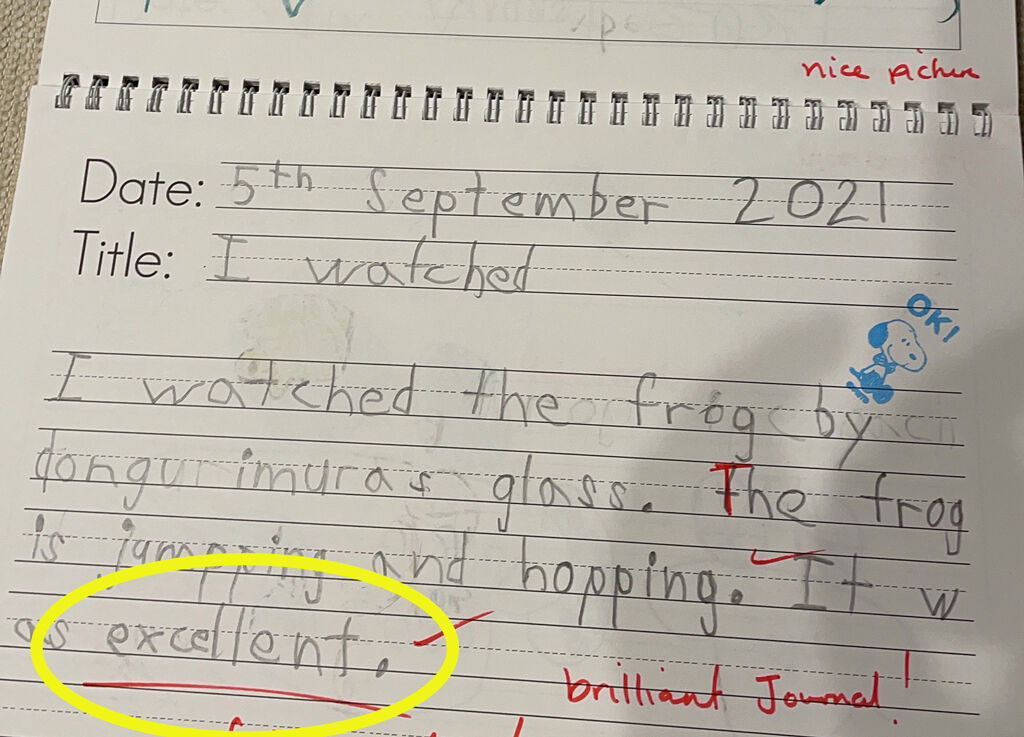 nice picture
Date: 5th September 2021
Title: I watched
OK!
I watched the frog by
dongurimura's glass. The frog
is jampping and hopping. It w
as excellent.
brilliant Journal!